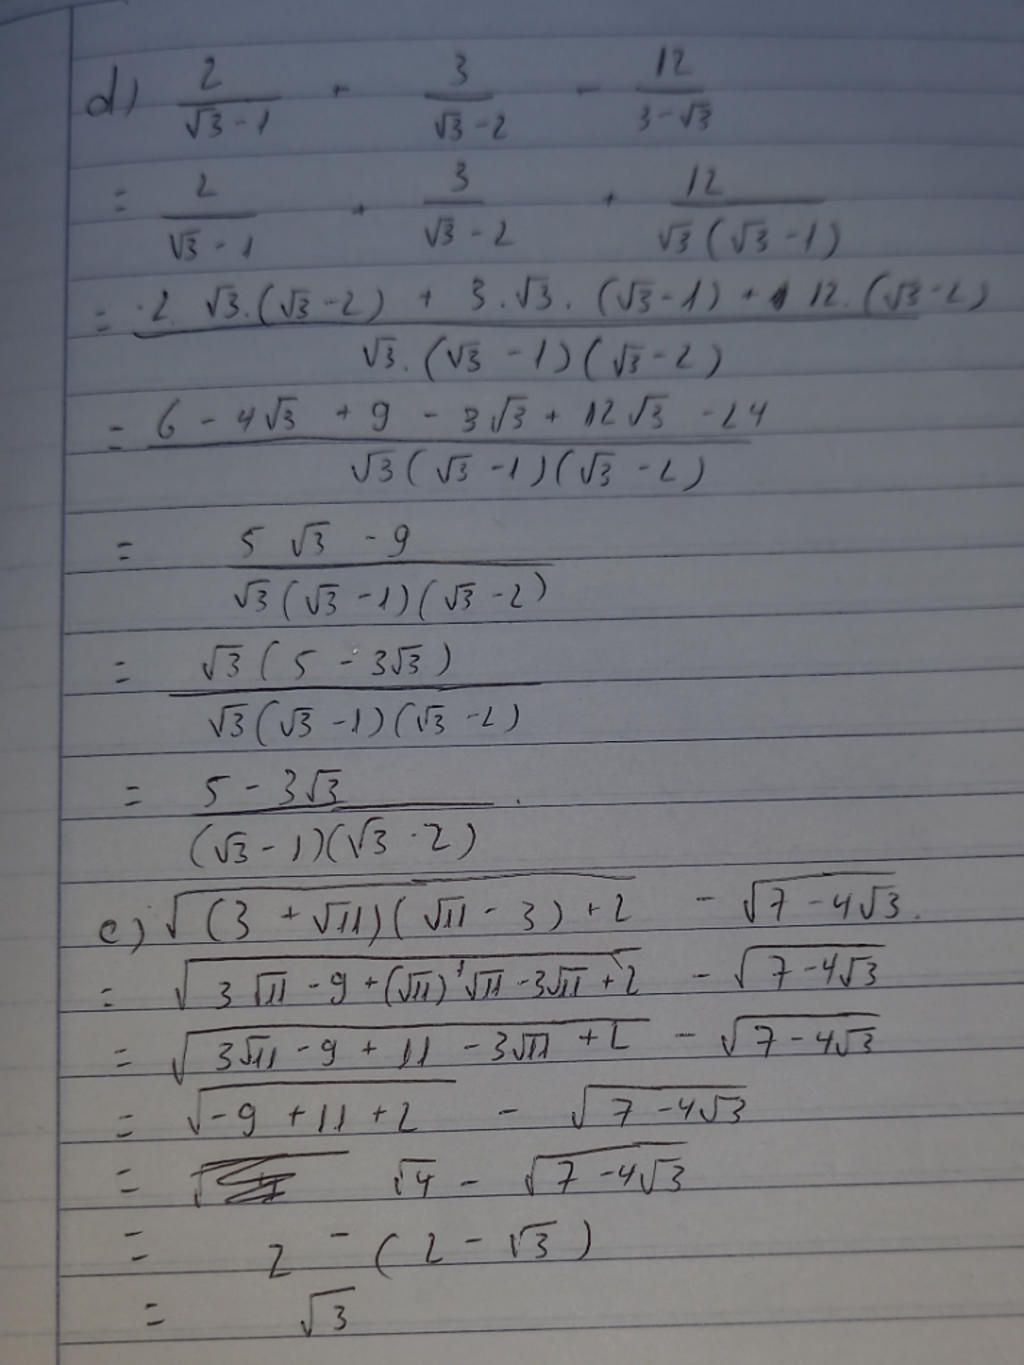 d) 2/(√3 - 1) + 3/(√3 - 2) - 12/(3 - √3)
= 2/(√3 - 1) + 3/(√3 - 2) + 12/(√3 (√3 - 1))
= (2. √3.(√3 - 2) + 3.√3.(√3 - 1) + 12.(√3 - 2))/(√3.(√3 - 1)(√3 - 2))
= (6 - 4√3 + 9 - 3√3 + 12√3 - 24)/(√3(√3 - 1)(√3 - 2))
= (5√3 - 9)/(√3(√3 - 1)(√3 - 2))
= (√3(5 - 3√3))/(√3(√3 - 1)(√3 - 2))
= (5 - 3√3)/((√3 - 1)(√3 - 2)).
e) √((3 + √11)(√11 - 3) + 2) - √(7 - 4√3).
= √(3√11 - 9 + (√11)·√11 - 3√11 + 2) - √(7 - 4√3)
= √(3√11 - 9 + 11 - 3√11 + 2) - √(7 - 4√3)
= √(-9 + 11 + 2) - √(7 - 4√3)
= √4 - √(7 - 4√3)
= 2 - (2 - √3)
= √3